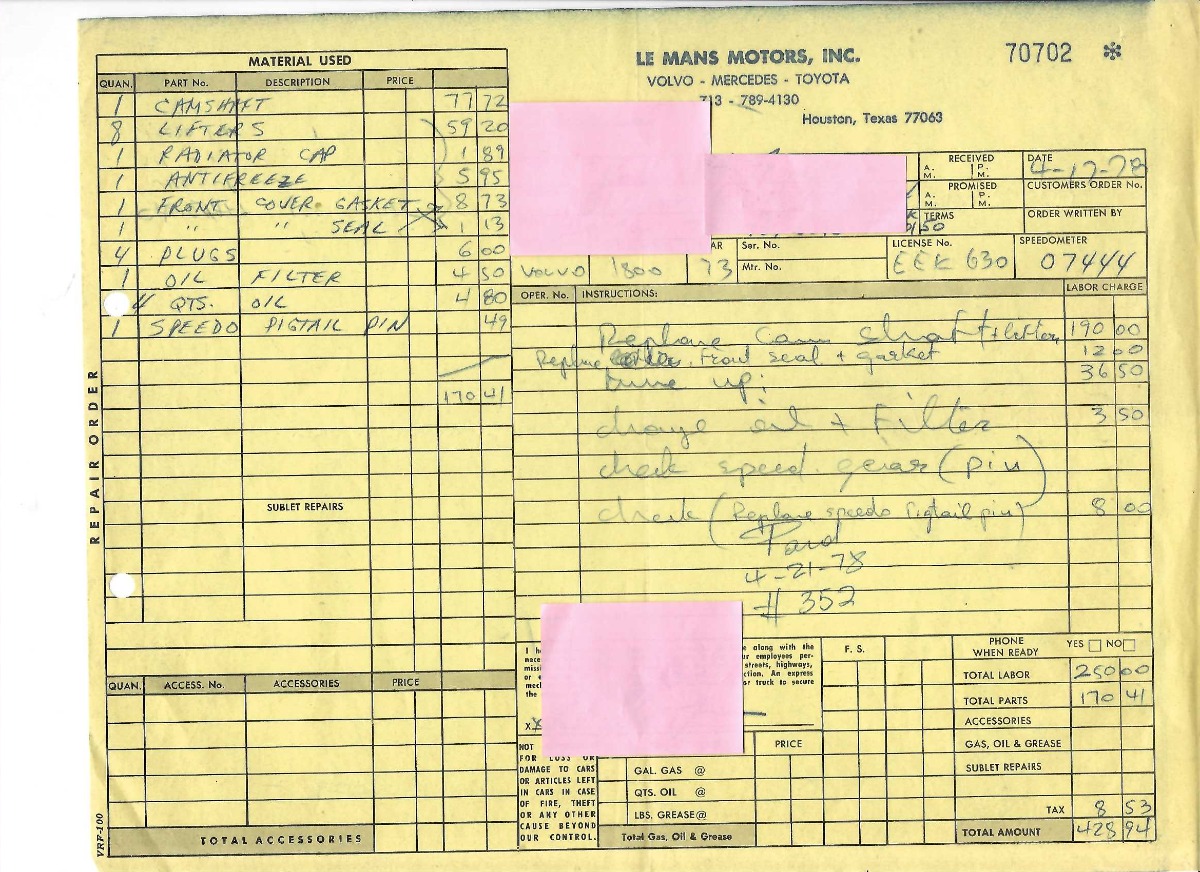 LE MANS MOTORS, INC.
70702 *
VOLVO - MERCEDES - TOYOTA
713 - 789-4130
Houston, Texas 77063
RECEIVED A. M. P. M.
DATE 4-17-78
PROMISED A. M. P. M.
CUSTOMERS ORDER No.
TERMS
ORDER WRITTEN BY
VOLVO 1800 73
Ser. No.
Mtr. No.
LICENSE No. EEK 630
SPEEDOMETER 07444
REPAIR ORDER
MATERIAL USED
QUAN. PART No. DESCRIPTION PRICE
1 CAMSHAFT 77 72
8 LIFTERS 59 20
1 RADIATOR CAP 1 89
1 ANTIFREEZE 5 95
1 FRONT COVER GASKET 8 73
1 " " SEAL 1 13
4 PLUGS 6 00
1 OIL FILTER 4 50
4 QTS. OIL 4 80
1 SPEEDO PIGTAIL PIN 49
170 41
SUBLET REPAIRS
QUAN. ACCESS. No. ACCESSORIES PRICE
TOTAL ACCESSORIES
VRF-100
OPER. No. INSTRUCTIONS: LABOR CHARGE
Replace Cam shaft + lifters 190 00
Replace Front seal + gasket 12 00
tune up: 36 50
change oil + Filter 3 50
check speed. gears (pin)
check (Replace speedo pigtail pin) 8 00
Paid
4-21-78
# 352
e along with the
ur employees per-
streets, highways,
ction. An express
or truck to secure
X
NOT
FOR LOSS OR
DAMAGE TO CARS
OR ARTICLES LEFT
IN CARS IN CASE
OF FIRE, THEFT
OR ANY OTHER
CAUSE BEYOND
OUR CONTROL.
PRICE
GAL. GAS @
QTS. OIL @
LBS. GREASE @
Total Gas, Oil & Grease
F. S.
PHONE WHEN READY YES NO
TOTAL LABOR 250 00
TOTAL PARTS 170 41
ACCESSORIES
GAS, OIL & GREASE
SUBLET REPAIRS
TAX 8 53
TOTAL AMOUNT 428 94